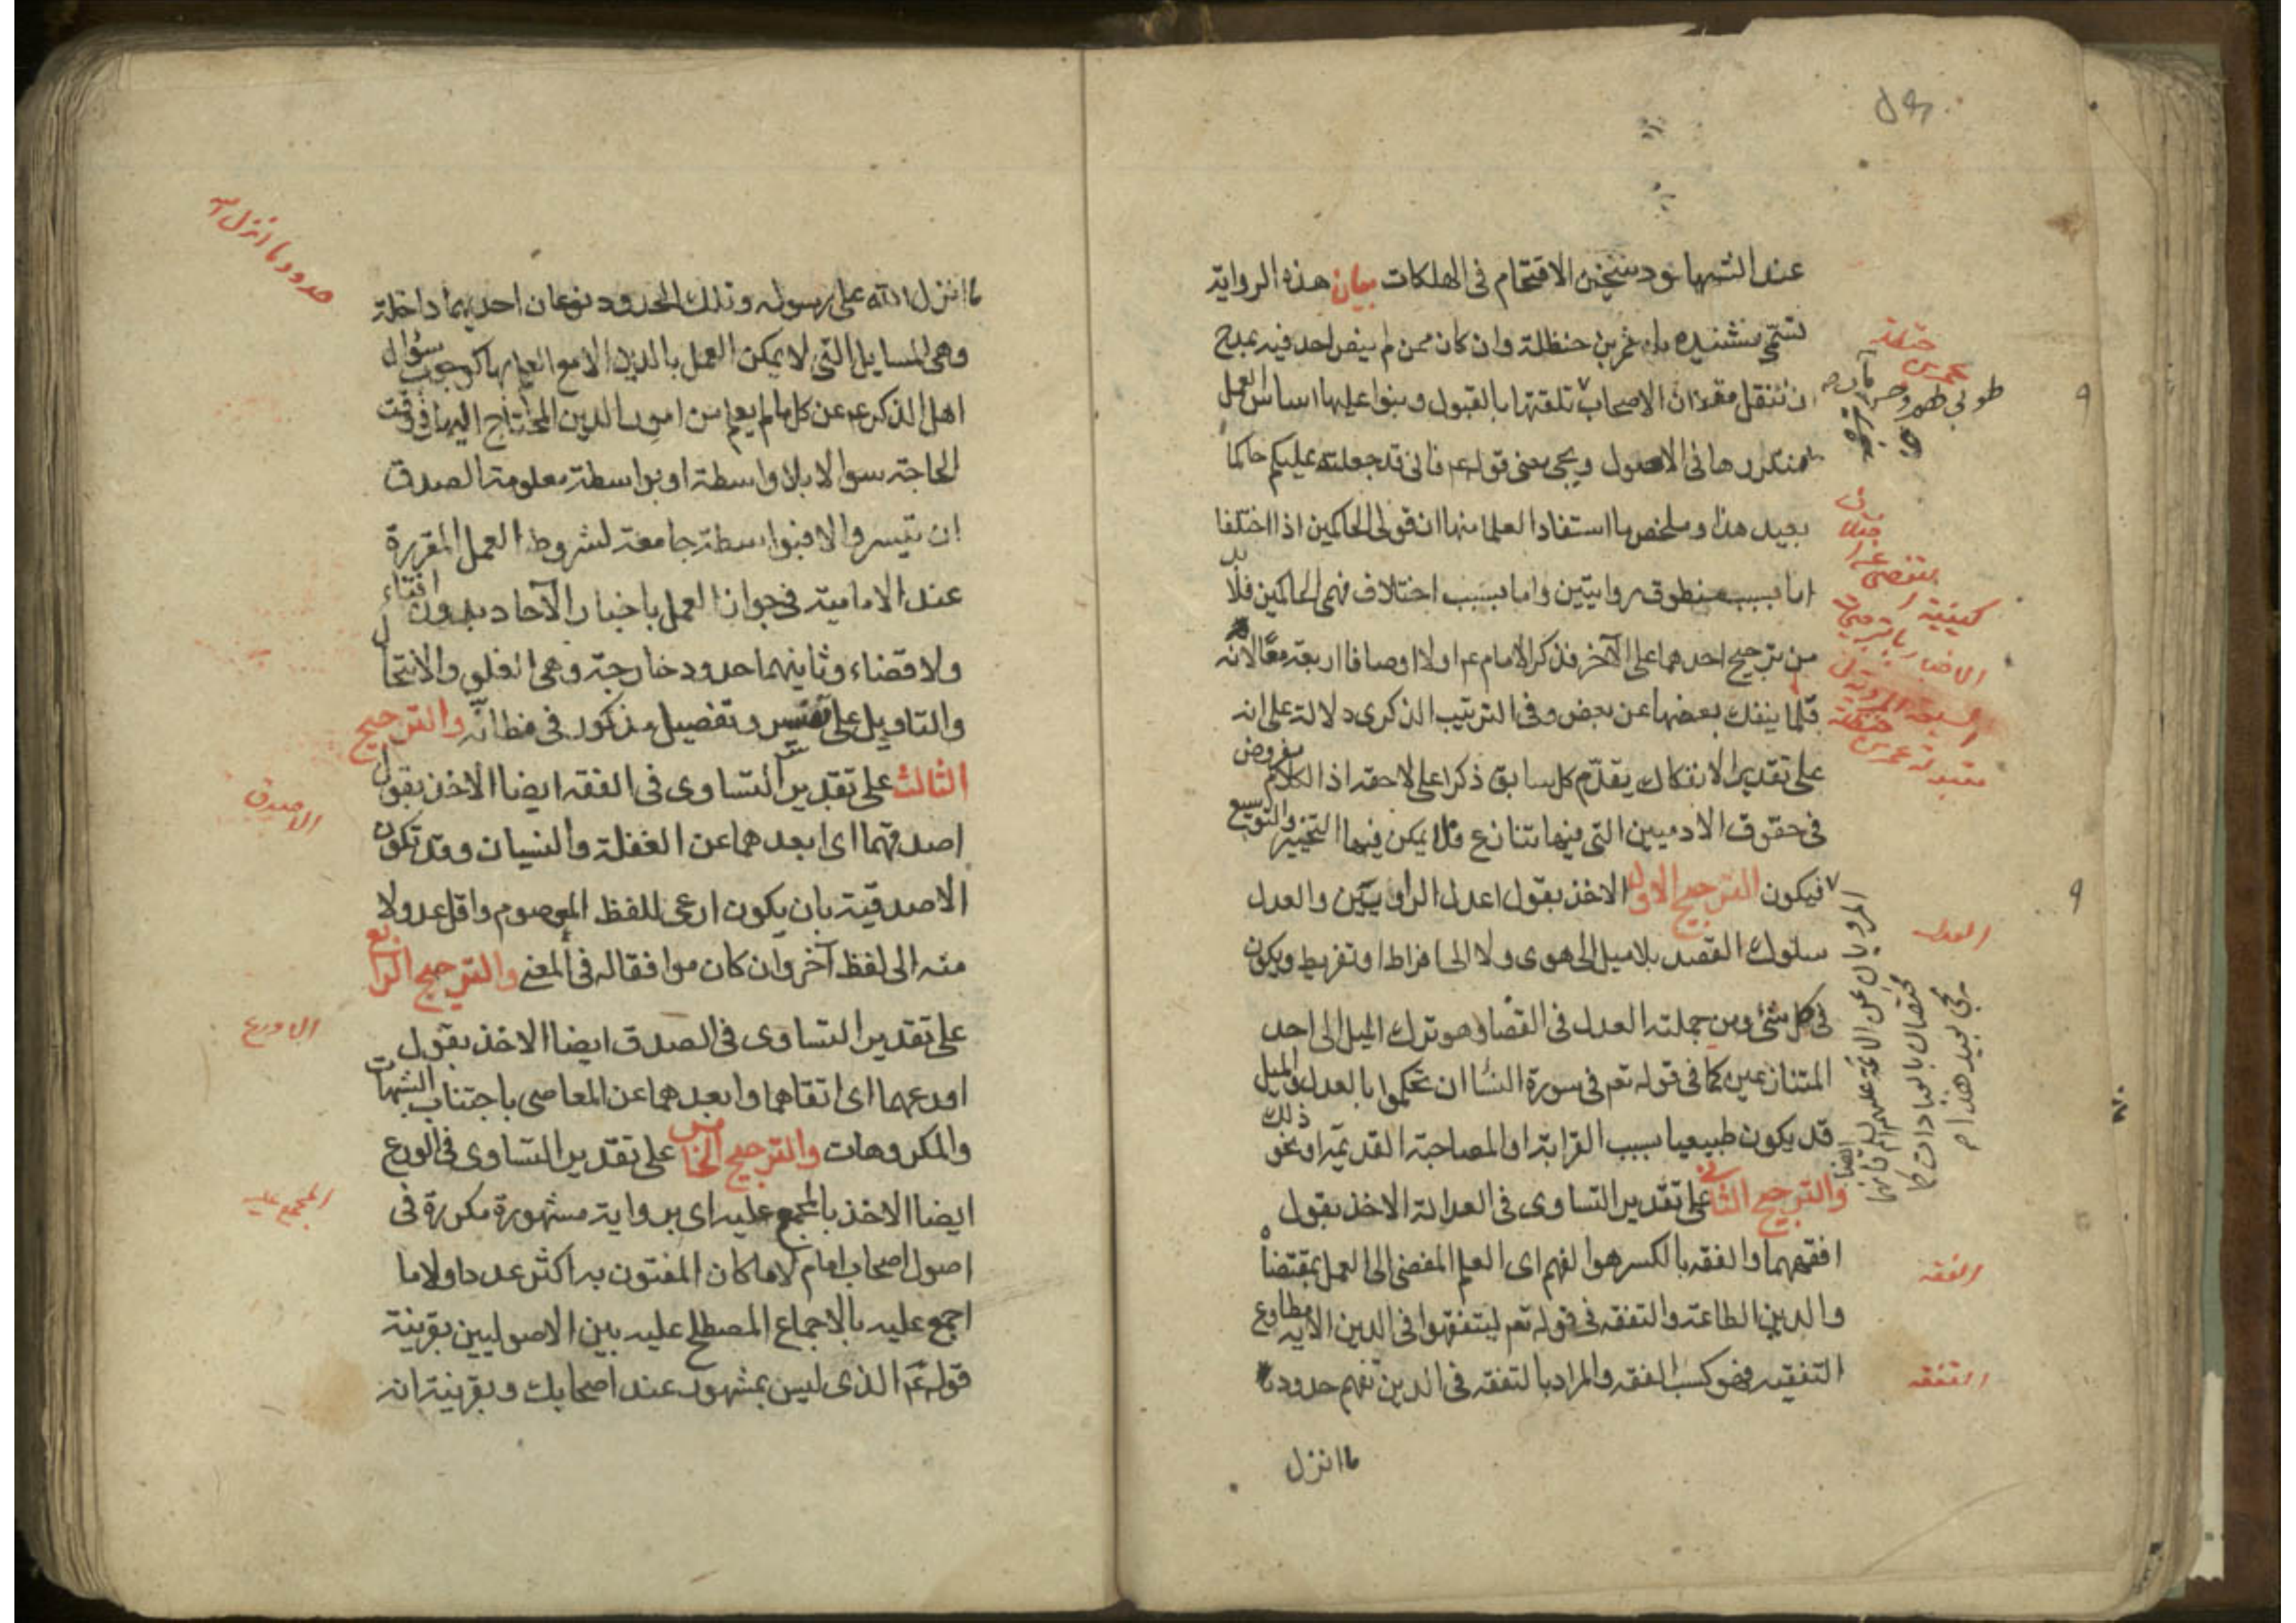 عند الشبهات خير من الاقتحام في الهلكات بيان هذه الرواية
بن حنظلة وان كان ممن لم ينص احد فيه بمدح
الاصحاب تلقتها بالقبول وبنوا عليها اساس العمل
في الاصول ويجئ معنى قوله عم فاني قد جعلته عليكم حاكما
بعيد هذا وملخص ما استفاد العلما منها ان قولي الحاكمين اذا اختلفا
اما بسبب منطوق روايتين واما بسبب اختلاف فهمي الحاكمين فلا بد
من ترجيح احدهما على الآخر فذكر الامام عم اولا اوصافا اربعة معا لانه
قلما ينفك بعضها عن بعض وفي الترتيب الذكرى دلالة على انه
على تقدير الانفكاك يقدم كل سابق ذكرا على لاحقه اذ الكلام مفروض
في حقوق الادميين التي فيها تنازع فلا يمكن فيها التخيير والتوسيع
فيكون الترجيح الاول الاخذ بقول اعدل الراويين والعدل
سلوك القصد بلا ميل الى هوى ولا الى افراط او تفريط ويكون
في كل شئ ومن جملته العدل في القضا وهو ترك الميل الى احد
المتنازعين كما في قوله تعم في سورة النسا ان تحكموا بالعدل والميل
قد يكون طبيعيا بسبب القرابة او المصاحبة القديمة او نحو ذلك
والترجيح الثاني على تقدير التساوى في العدالة الاخذ بقول
افقههما والفقه بالكسر هو الفهم اى العلم المفضى الى العمل بمقتضاه
والدين الطاعة والتفقه في قوله تعم ليتفقهوا في الدين الآية مطاوع
التفقيه فهو كسب الفقه والمراد بالتفقه في الدين تفهم حدود
ما انزل
حنظلة
عمر بن
كيفية
الاخبار
حنظلة
مقبولة عمر بن
العدل
المرويان عن الائمة عليهم السلام فانهما
مختصان بالعبادات كما
يجئ بعيد هذا
ايضا
الفقه
التفقه
حدود ما انزل الله
ما انزل الله على رسوله وتلك الحدود نوعان احديهما داخلة
وهي المسايل التي لا يمكن العمل بالدين الا مع العلم بها كوجوب سؤال
اهل الذكر عم عن كل ما لم يعلم من امور الدين المحتاج اليها في وقت
الحاجة سوالا بلا واسطة او بواسطة معلومة الصدق
ان تيسر والا فبواسطة جامعة لشروط العمل المقررة
عند الامامية في جواز العمل باخبار الآحاد بدون افتاء
ولا قضاء وثانيهما حدود خارجة وهي الغلو والانتحال
والتاويل على تفسير وتفصيل مذكور في مظانه والترجيح
الثالث على تقدير التساوى في الفقه ايضا الاخذ بقول
الاصدق
اصدقهما اى ابعدهما عن الغفلة والنسيان وقد تكون
الاصدقية بان يكون ارعى للفظ المعصوم واقل عدولا
منه الى لفظ آخر وان كان موافقا له في المعنى والترجيح الرابع
على تقدير التساوى في الصدق ايضا الاخذ بقول
الاورع
اورعهما اى اتقاهما وابعدهما عن المعاصى باجتناب الشبهات
والمكروهات والترجيح الخامس على تقدير التساوى في الورع
ايضا الاخذ بالمجمع عليه اى برواية مشهورة مكررة في
المجمع عليه
اصول اصحاب امام لا ما كان المفتون به اكثر عددا ولا ما
اجمع عليه بالاجماع المصطلح عليه بين الاصوليين بقرينة
قوله عم الذى ليس بمشهور عند اصحابك وبقرينة انه